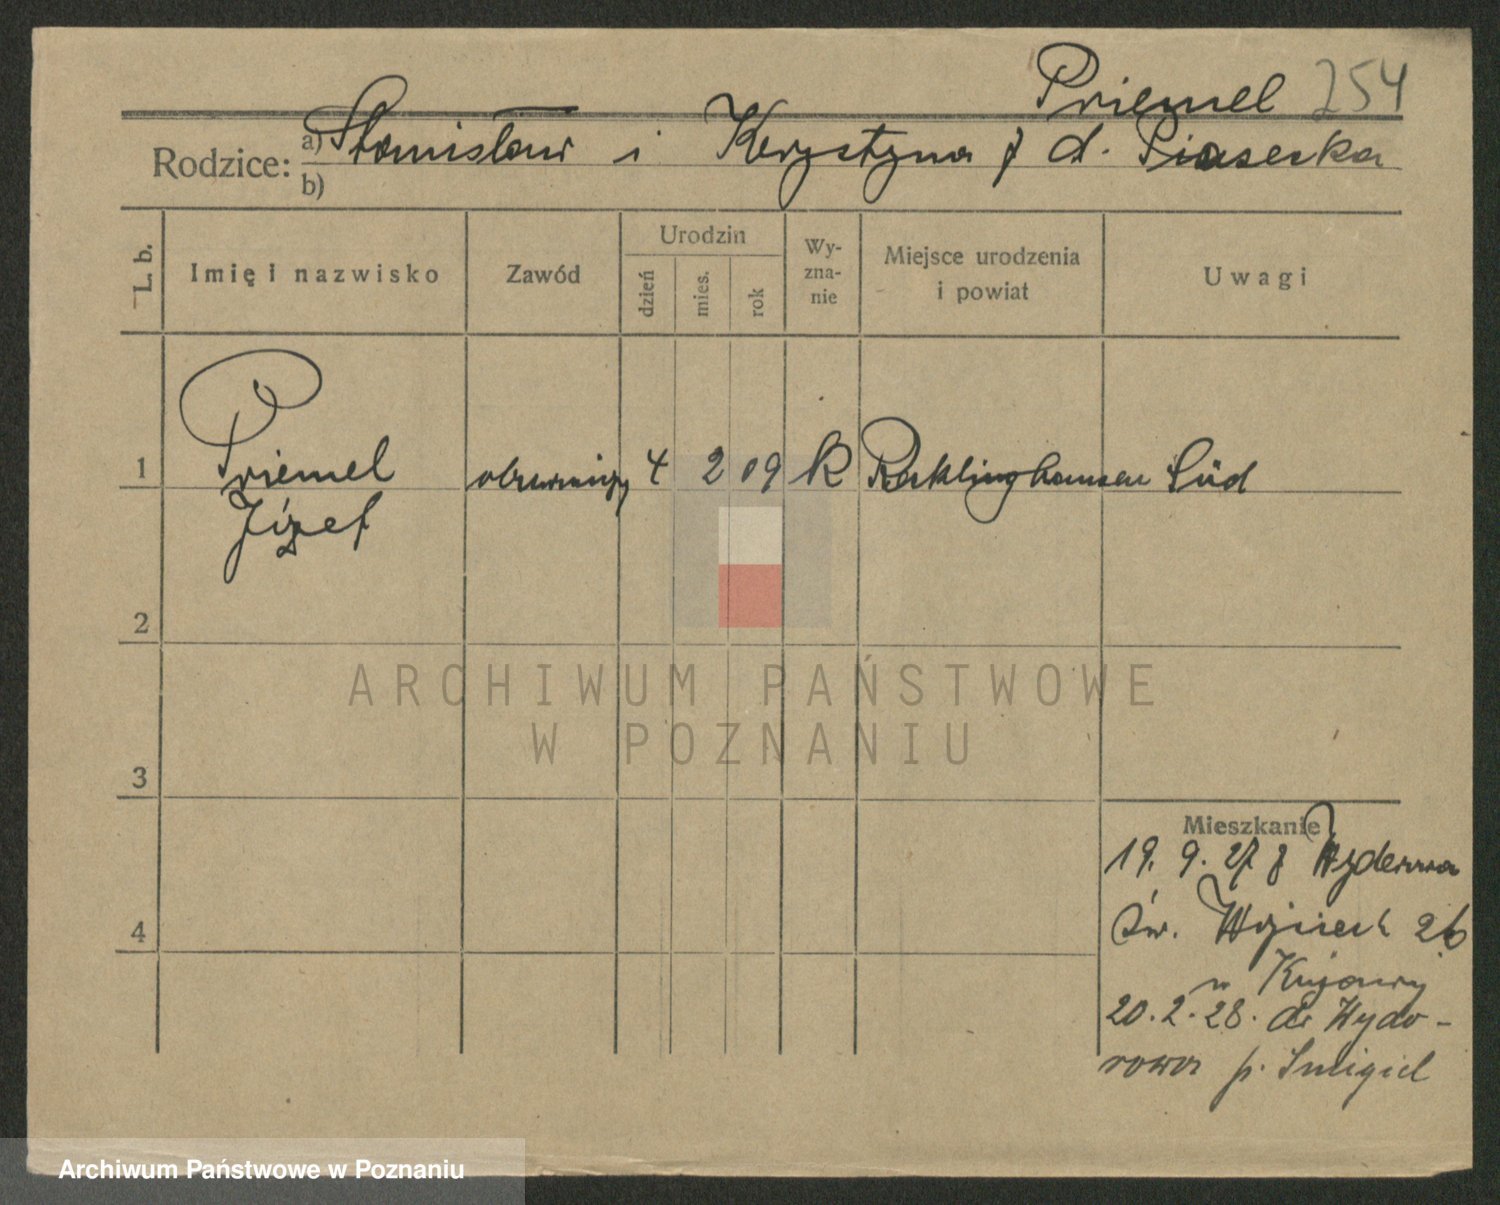 Priemel 254
Rodzice: a) Stanisław i Krystyna z d. Piasecka
b)
L. b.
Imię i nazwisko
Zawód
Urodzin
dzień
mies.
rok
Wy-
zna-
nie
Miejsce urodzenia
i powiat
Uwagi
1 Priemel 4 2 09 k Recklinghausen Süd
Józef
2
ARCHIWUM PAŃSTWOWE
W POZNANIU
3
Mieszkanie
19. 9. 27 z
św. Wojciech 26
4
20. 2. 28. do Wydo-
rowa p. Smigiel
Archiwum Państwowe w Poznaniu